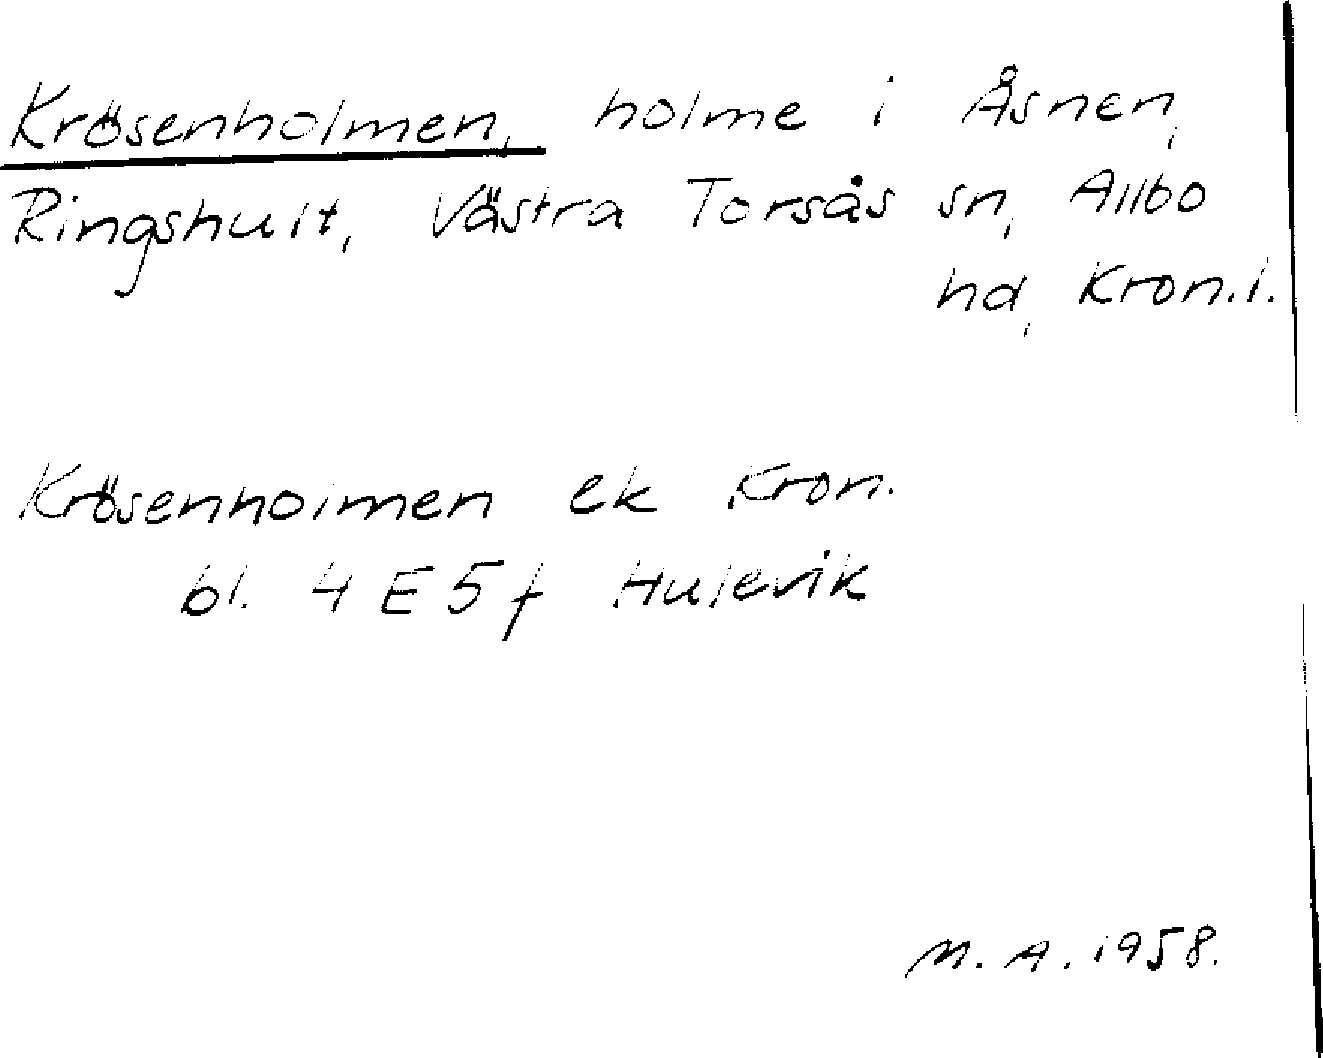 Krösenholmen, holme i Åsnen,
Ringshult, Västra Torsås sn, Allbo
hd, Kron.l.
Krösenholmen ek Kron.
bl. 4 E 5 f Hulevik
M. A. 1958.